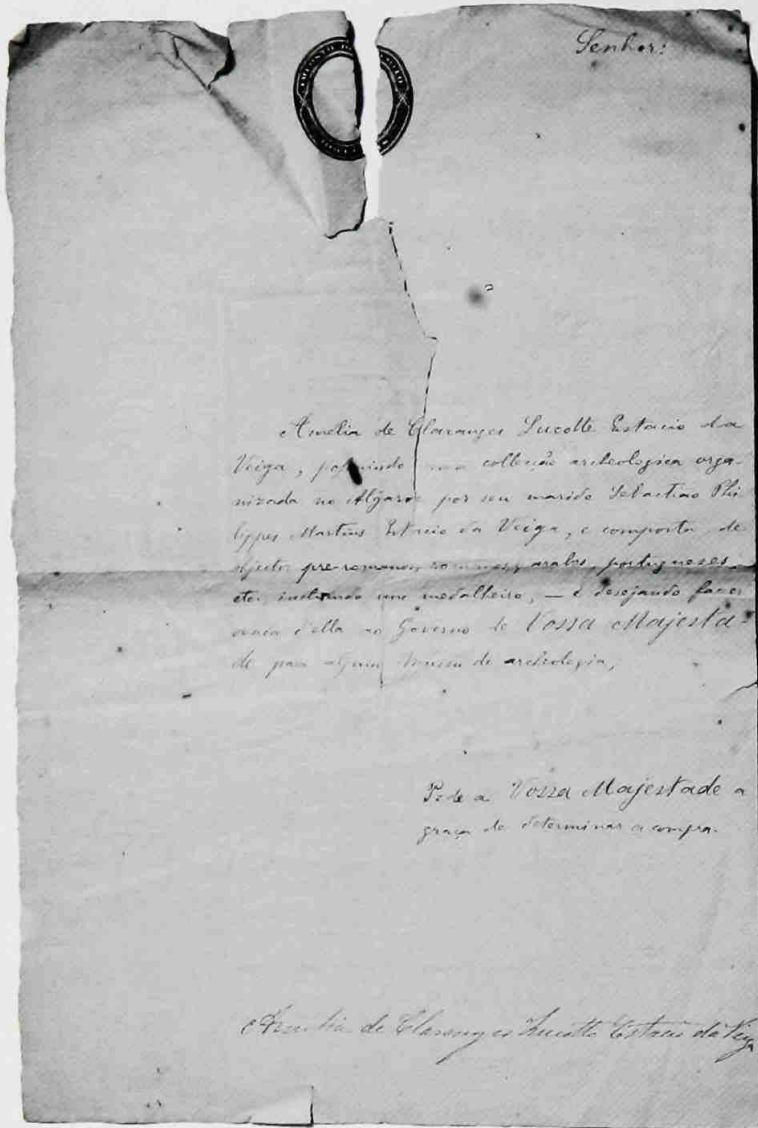 Senhor:
Amelia de Claranges Lucotte Estacio da
Veiga, possuindo uma collecção archeologica orga-
nizada no Algarve por seu marido Sebastião Phi
lippes Martins Estacio da Veiga, e composta de
objectos pre-romanos, romanos, arabes, portugueses,
etc, incluindo um medalheiro, — e desejando fazer
d'ella ao Governo de Vossa Majesta-
de para algum museu de archeologia,
Pede a Vossa Majestade a
graça de determinar a compra.
Amelia de Claranges Lucotte Estacio da Veiga